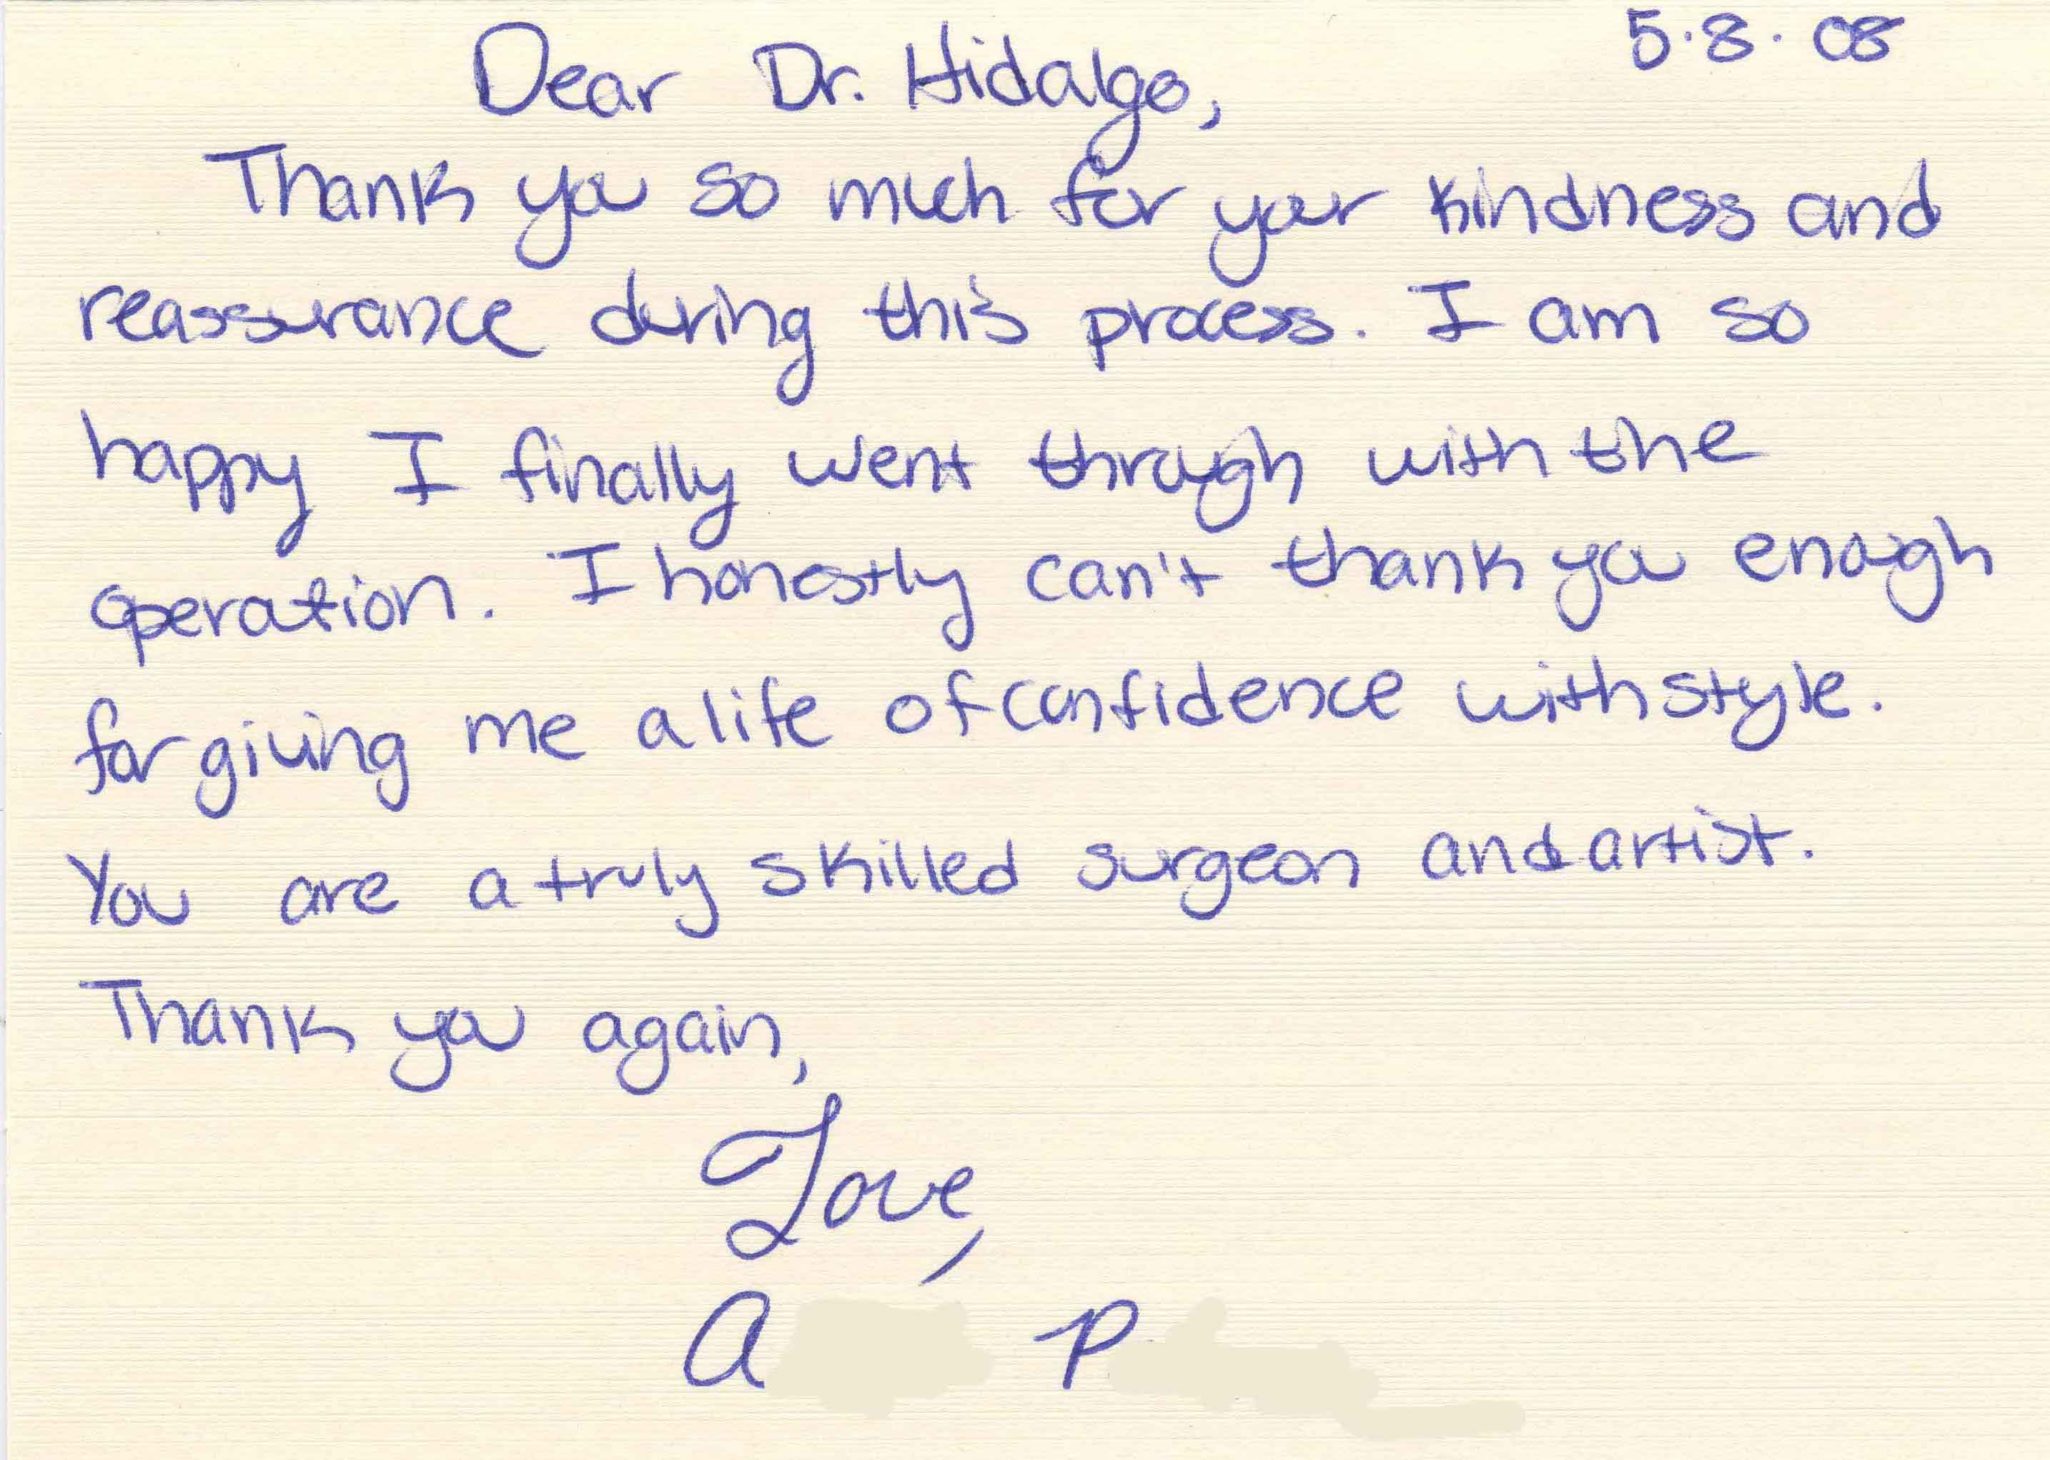 5.8.08
Dear Dr. Hidalgo,
Thank you so much for your kindness and
reassurance during this process. I am so
happy I finally went through with the
operation. I honestly can't thank you enough
for giving me a life of confidence with style.
You are a truly skilled surgeon and artist.
Thank you again,
Love,
A P